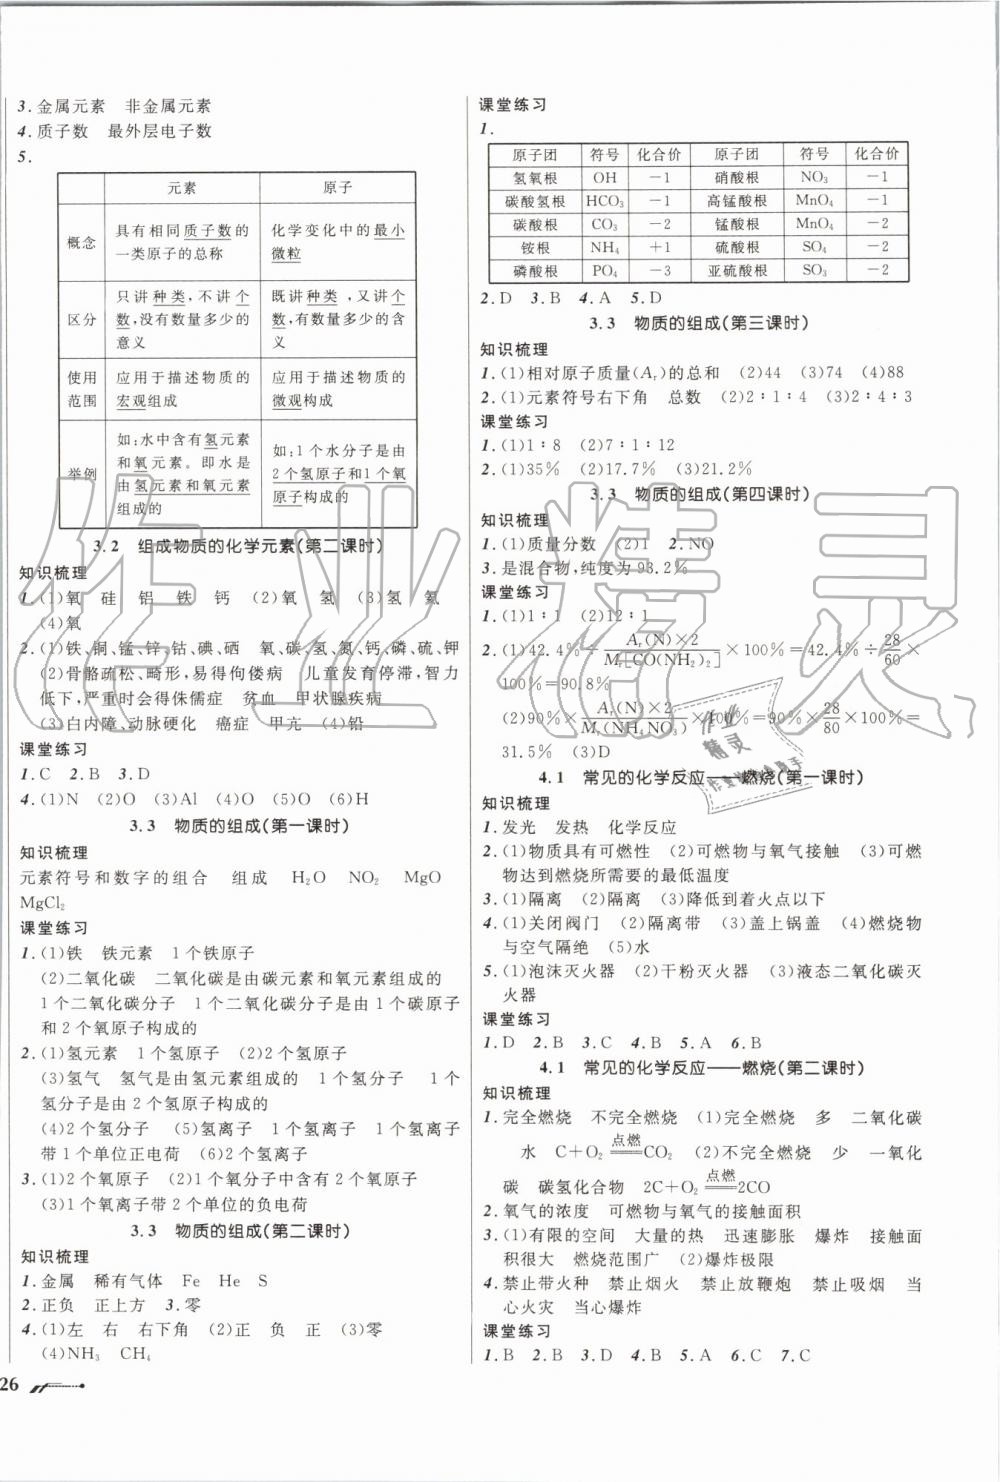 3.金属元素 非金属元素
4.质子数 最外层电子数
5.
元素 原子
概念 具有相同质子数的一类原子的总称 化学变化中的最小微粒
区分 只讲种类,不讲个数,没有数量多少的意义 既讲种类,又讲个数,有数量多少的含义
使用范围 应用于描述物质的宏观组成 应用于描述物质的微观构成
举例 如:水中含有氢元素和氧元素。即水是由氢元素和氧元素组成的 如:1个水分子是由2个氢原子和1个氧原子构成的
3.2 组成物质的化学元素(第二课时)
知识梳理
1.(1)氧 硅 铝 铁 钙 (2)氧 氢 (3)氢 氦
(4)氧
2.(1)铁、铜、锰、锌、钴、碘、硒 氧、碳、氢、氮、钙、磷、硫、钾
(2)骨骼疏松、畸形,易得佝偻病 儿童发育停滞,智力
低下,严重时会得侏儒症 贫血 甲状腺疾病
(3)白内障、动脉硬化 癌症 甲亢 (4)铅
课堂练习
1.C 2.B 3.D
4.(1)N (2)O (3)Al (4)O (5)O (6)H
3.3 物质的组成(第一课时)
知识梳理
元素符号和数字的组合 组成 H₂O NO₂ MgO
MgCl₂
课堂练习
1.(1)铁 铁元素 1个铁原子
(2)二氧化碳 二氧化碳是由碳元素和氧元素组成的
1个二氧化碳分子 1个二氧化碳分子是由1个碳原子
和2个氧原子构成的
2.(1)氢元素 1个氢原子 (2)2个氢原子
(3)氢气 氢气是由氢元素组成的 1个氢分子 1个
氢分子是由2个氢原子构成的
(4)2个氢分子 (5)氢离子 1个氢离子 1个氢离子
带1个单位正电荷 (6)2个氢离子
3.(1)2个氧原子 (2)1个氧分子中含有2个氧原子
(3)1个氧离子带2个单位的负电荷
3.3 物质的组成(第二课时)
知识梳理
1.金属 稀有气体 Fe He S
2.正负 正上方 3.零
4.(1)左 右 右下角 (2)正 负 正 (3)零
(4)NH₃ CH₄
26
课堂练习
1.
原子团 符号 化合价 原子团 符号 化合价
氢氧根 OH −1 硝酸根 NO₃ −1
碳酸氢根 HCO₃ −1 高锰酸根 MnO₄ −1
碳酸根 CO₃ −2 锰酸根 MnO₄ −2
铵根 NH₄ +1 硫酸根 SO₄ −2
磷酸根 PO₄ −3 亚硫酸根 SO₃ −2
2.D 3.B 4.A 5.D
3.3 物质的组成(第三课时)
知识梳理
1.(1)相对原子质量(Aᵣ)的总和 (2)44 (3)74 (4)88
2.(1)元素符号右下角 总数 (2)2∶1∶4 (3)2∶4∶3
课堂练习
1.(1)1∶8 (2)7∶1∶12
2.(1)35% (2)17.7% (3)21.2%
3.3 物质的组成(第四课时)
知识梳理
1.(1)质量分数 (2)1 2.NO
3.是混合物,纯度为93.2%
课堂练习
1.(1)1∶1 (2)12∶1
2.(1)42.4%÷Aᵣ(N)×2/Mᵣ[CO(NH₂)₂]×100%=42.4%÷28/60×
100%=90.8%
(2)90%×Aᵣ(N)×2/Mᵣ(NH₄NO₃)×100%=90%×28/80×100%=
31.5% (3)D
4.1 常见的化学反应——燃烧(第一课时)
知识梳理
1.发光 发热 化学反应
2.(1)物质具有可燃性 (2)可燃物与氧气接触 (3)可燃
物达到燃烧所需要的最低温度
3.(1)隔离 (2)隔离 (3)降低到着火点以下
4.(1)关闭阀门 (2)隔离带 (3)盖上锅盖 (4)燃烧物
与空气隔绝 (5)水
5.(1)泡沫灭火器 (2)干粉灭火器 (3)液态二氧化碳灭
火器
课堂练习
1.D 2.B 3.C 4.B 5.A 6.B
4.1 常见的化学反应——燃烧(第二课时)
知识梳理
1.完全燃烧 不完全燃烧 (1)完全燃烧 多 二氧化碳
水 C+O₂ 点燃═══ CO₂ (2)不完全燃烧 少 一氧化
碳 碳氢化合物 2C+O₂ 点燃═══ 2CO
2.氧气的浓度 可燃物与氧气的接触面积
3.(1)有限的空间 大量的热 迅速膨胀 爆炸 接触面
积很大 燃烧范围广 (2)爆炸极限
4.禁止带火种 禁止烟火 禁止放鞭炮 禁止吸烟 当
心火灾 当心爆炸
课堂练习
1.B 2.B 3.D 4.B 5.A 6.C 7.C
作业精灵
作业
精灵